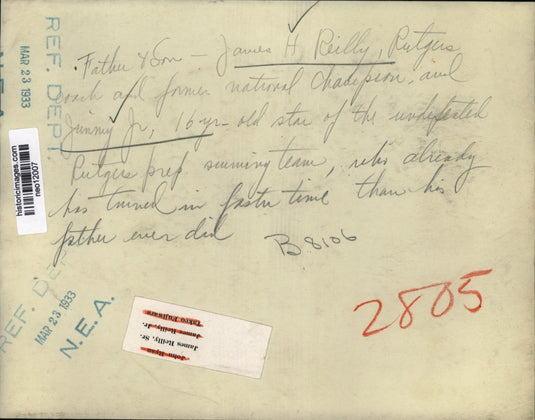 Father & Son - James H Reilly, Rutgers
coach and former national champion, and
Jimmy Jr, 16-yr-old star of the undefeated
Rutgers prep swimming team, who already
has turned in faster time than his
father ever did
B 8106
2805
REF. DEPT.
MAR 23 1933
N.E.A.
historicimages.com
neo12007
REF. DEPT.
MAR 23 1933
N. E. A.
John Ryan
James Reilly, Sr.
James Reilly, Jr.
Takeo Fujiwara